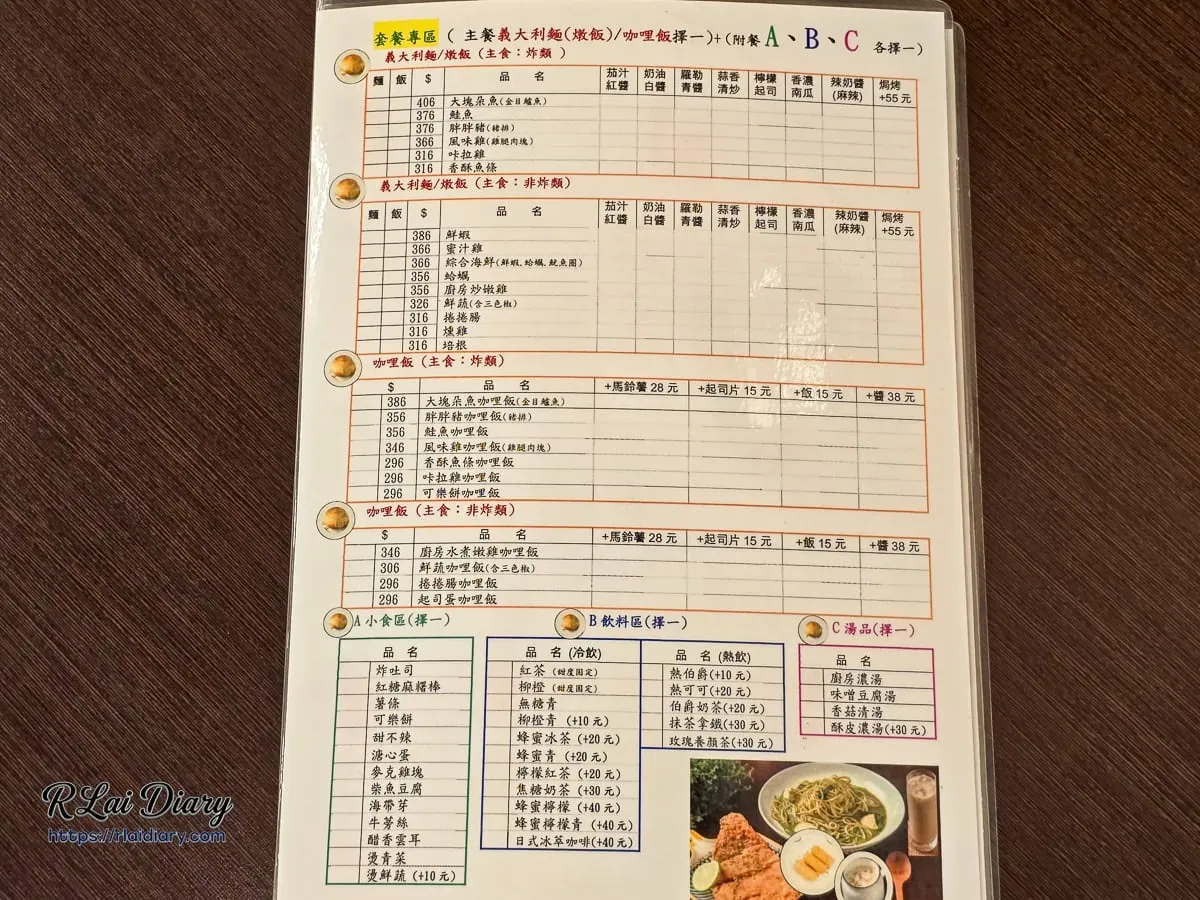 套餐專區 ( 主餐義大利麵(燉飯)/咖哩飯擇一)+(附餐 A、B、C 各擇一)
義大利麵/燉飯 (主食：炸類 )
麵 飯 $ 品 名 茄汁紅醬 奶油白醬 羅勒青醬 蒜香清炒 檸檬起司 香濃南瓜 辣奶醬(麻辣) 焗烤+55元
406 大塊朵魚(金目鱸魚)
376 鮭魚
376 胖胖豬(豬排)
366 風味雞(雞腿肉塊)
316 咔拉雞
316 香酥魚條
義大利麵/燉飯 (主食：非炸類)
麵 飯 $ 品 名 茄汁紅醬 奶油白醬 羅勒青醬 蒜香清炒 檸檬起司 香濃南瓜 辣奶醬(麻辣) 焗烤+55元
386 鮮蝦
366 蜜汁雞
366 綜合海鮮(鮮蝦、蛤蠣、魷魚圈)
356 蛤蠣
356 廚房炒嫩雞
326 鮮蔬(含三色椒)
316 捲捲腸
316 燻雞
316 培根
咖哩飯 (主食：炸類)
$ 品 名 +馬鈴薯 28 元 +起司片 15 元 +飯 15 元 +醬 38 元
386 大塊朵魚咖哩飯(金目鱸魚)
356 胖胖豬咖哩飯(豬排)
356 鮭魚咖哩飯
346 風味雞咖哩飯(雞腿肉塊)
296 香酥魚條咖哩飯
296 咔拉雞咖哩飯
296 可樂餅咖哩飯
咖哩飯 (主食：非炸類)
$ 品 名 +馬鈴薯 28 元 +起司片 15 元 +飯 15 元 +醬 38 元
346 廚房水煮嫩雞咖哩飯
306 鮮蔬咖哩飯(含三色椒)
296 捲捲腸咖哩飯
296 起司蛋咖哩飯
A 小食區(擇一)
品 名
炸吐司
紅糖麻糬棒
薯條
可樂餅
甜不辣
溏心蛋
麥克雞塊
柴魚豆腐
海帶芽
牛蒡絲
醋香雲耳
燙青菜
燙鮮蔬 (+10 元)
B 飲料區(擇一)
品 名 (冷飲)
紅茶 (甜度固定)
柳橙 (甜度固定)
無糖青
柳橙青 (+10 元)
蜂蜜冰茶 (+20 元)
蜂蜜青 (+20 元)
檸檬紅茶 (+20 元)
焦糖奶茶 (+30 元)
蜂蜜檸檬 (+40 元)
蜂蜜檸檬青 (+40元)
日式冰萃咖啡(+40元)
品 名 (熱飲)
熱伯爵(+10 元)
熱可可(+20 元)
伯爵奶茶(+20 元)
抹茶拿鐵(+30 元)
玫瑰養顏茶(+30 元)
C 湯品(擇一)
品 名
廚房濃湯
味噌豆腐湯
香菇清湯
酥皮濃湯(+30 元)
RLai Diary
https://rlaidiary.com